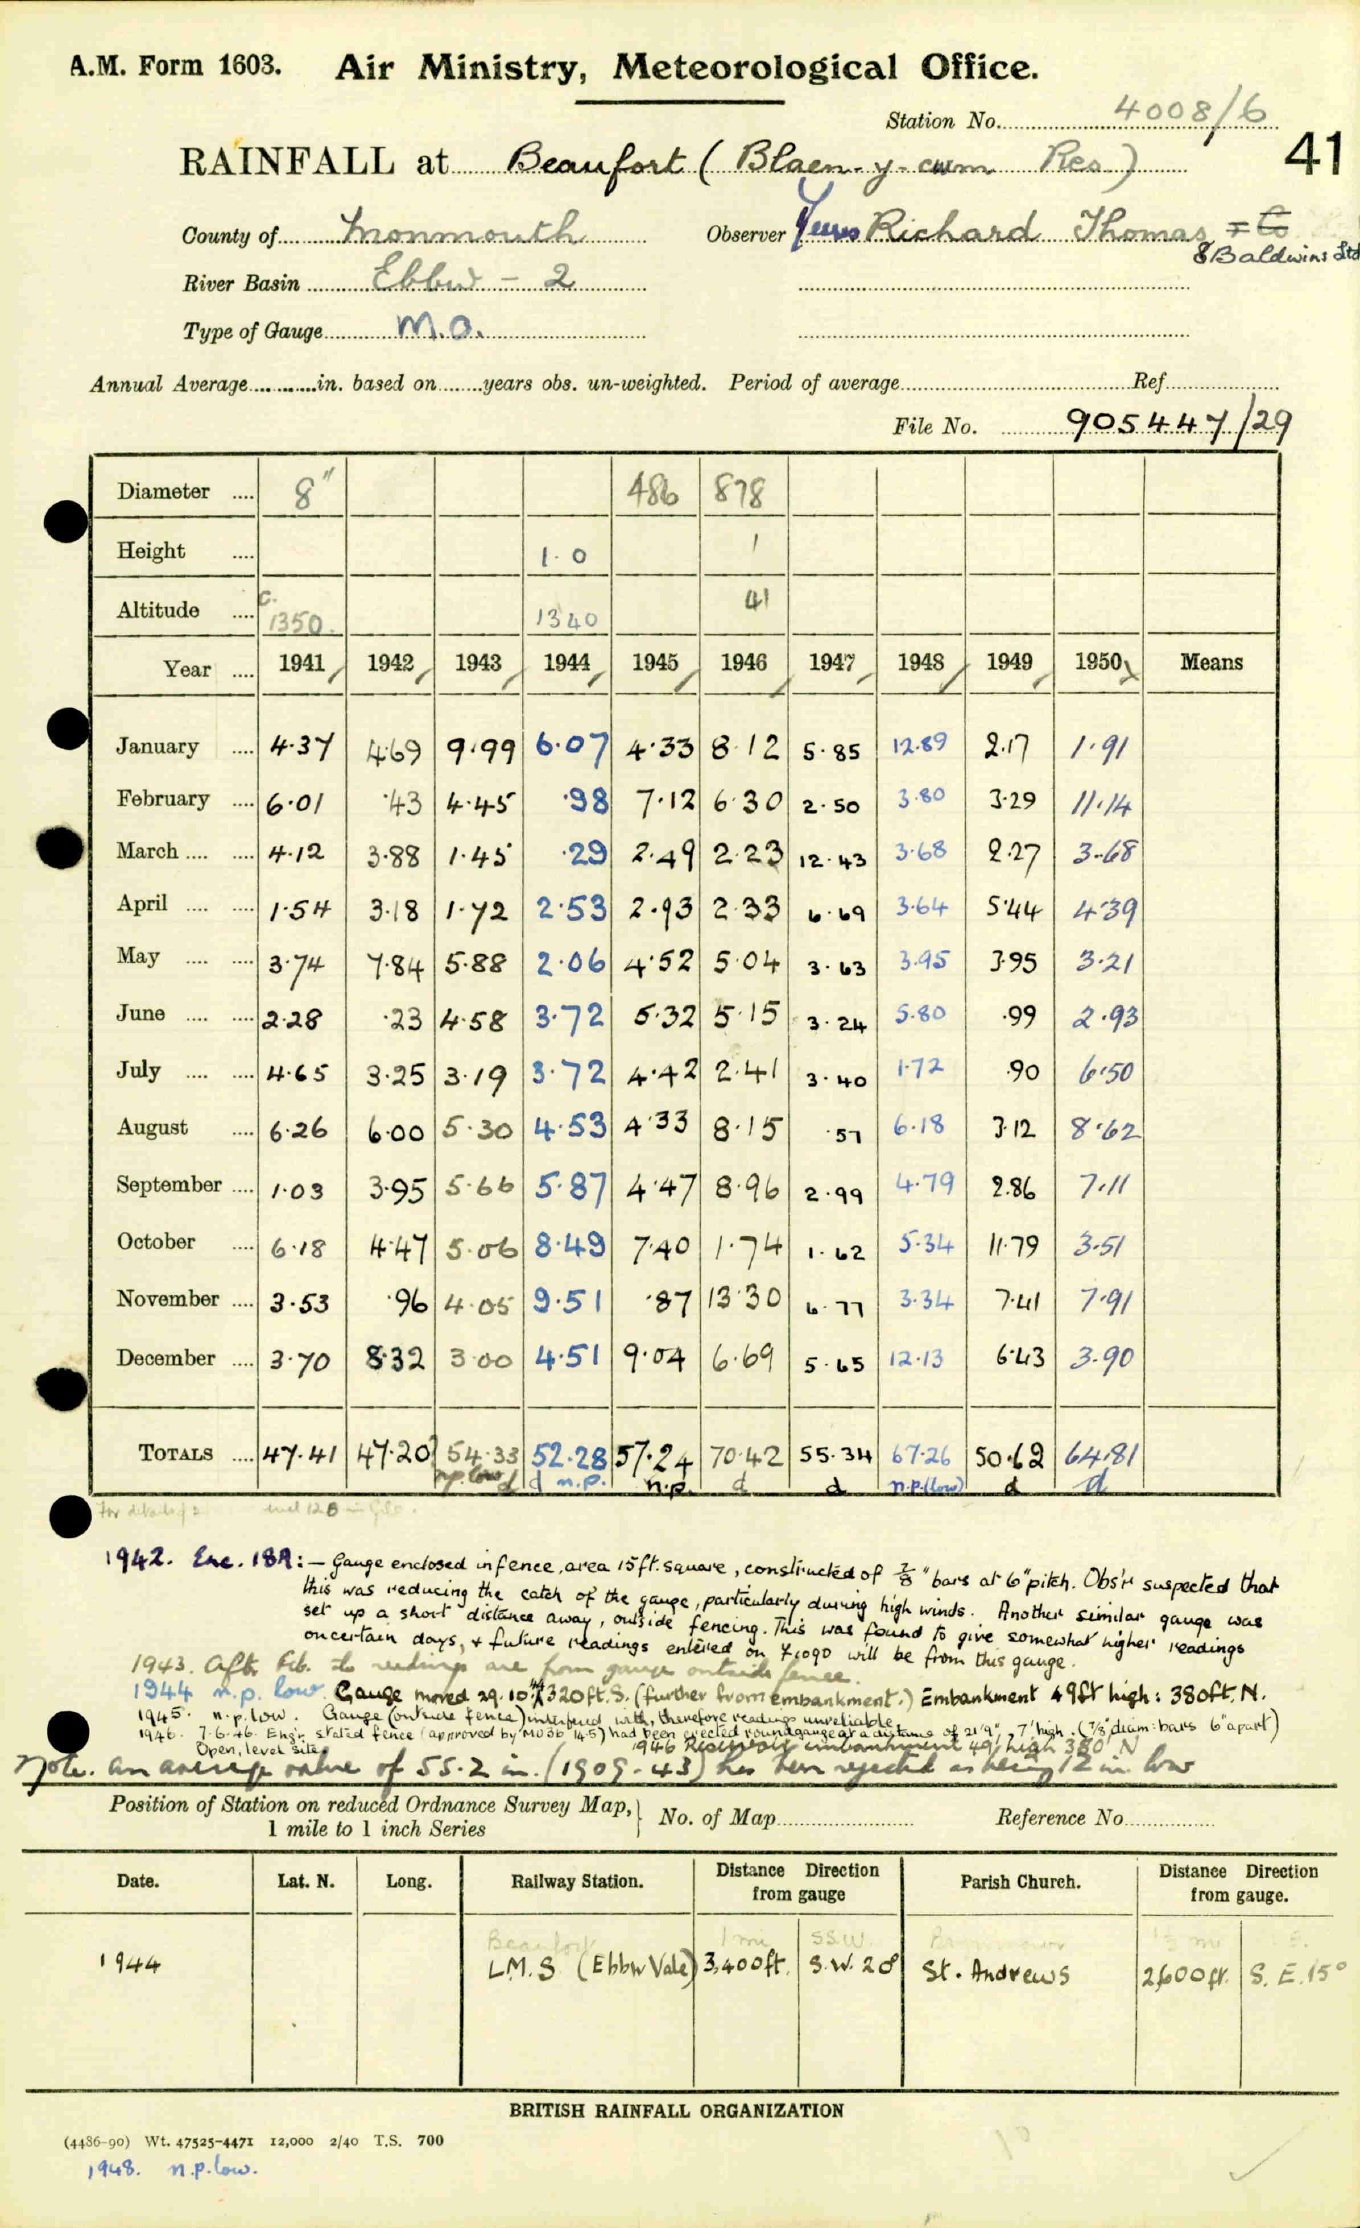 A.M. Form 1603. Air Ministry, Meteorological Office.
Station No. 4008/6
41
RAINFALL at Beaufort (Blaen-y-cwm Res)
County of Monmouth Observer Richard Thomas & Co
& Baldwins Ltd
River Basin Ebbw - 2
Type of Gauge M.O.
Annual Average in. based on years obs. un-weighted. Period of average Ref
File No. 905447/29
Diameter 8" 486 878
Height 1.0 1
Altitude c. 1350 1340 41
Year 1941 1942 1943 1944 1945 1946 1947 1948 1949 1950 Means
January 4.37 4.69 9.99 6.07 4.33 8.12 5.85 12.89 2.17 1.91
February 6.01 .43 4.45 .98 7.12 6.30 2.50 3.80 3.29 11.14
March 4.12 3.88 1.45 .29 2.49 2.23 12.43 3.68 2.27 3.68
April 1.54 3.18 1.72 2.53 2.93 2.33 6.69 3.64 5.44 4.39
May 3.74 7.84 5.88 2.06 4.52 5.04 3.63 3.95 3.95 3.21
June 2.28 .23 4.58 3.72 5.32 5.15 3.24 5.80 .99 2.93
July 4.65 3.25 3.19 3.72 4.42 2.41 3.40 1.72 .90 6.50
August 6.26 6.00 5.30 4.53 4.33 8.15 .57 6.18 3.12 8.62
September 1.03 3.95 5.66 5.87 4.47 8.96 2.99 4.79 2.86 7.11
October 6.18 4.47 5.06 8.49 7.40 1.74 1.62 5.34 11.79 3.51
November 3.53 .96 4.05 9.51 .87 13.30 6.77 3.34 7.41 7.91
December 3.70 8.32 3.00 4.51 9.04 6.69 5.65 12.13 6.43 3.90
TOTALS 47.41 47.20 54.33 52.28 57.24 70.42 55.34 67.26 50.62 64.81
n.p. low d d n.p. n.p. d d n.p. (low) d d
1942. Enc. 18A:— Gauge enclosed in fence, area 15 ft. square, constructed of 7/8" bars at 6" pitch. Obs'r suspected that
this was reducing the catch of the gauge, particularly during high winds. Another similar gauge was
set up a short distance away, outside fencing. This was found to give somewhat higher readings
on certain days, & future readings entered on F.1090 will be from this gauge.
1943. After Feb. the readings are from gauge outside fence.
1944 n.p. low. Gauge moved 29.10.44 320 ft. S. (further from embankment.) Embankment 49ft high: 380ft. N.
1945. n.p. low. Gauge (outside fence) interfered with, therefore readings unreliable.
1946. 7.6.46 Eng'r. stated fence (approved by MO8b '45) had been erected round gauge at a distance of 21'9", 7' high. (7/8" diam: bars 6" apart)
Open, level site. 1946 Reservoir embankment 49' high 380' N
Note. An average value of 55.2 in. (1909-43) has been rejected as being 12 in. low
Position of Station on reduced Ordnance Survey Map, No. of Map Reference No.
1 mile to 1 inch Series
Date. Lat. N. Long. Railway Station. Distance Direction from gauge Parish Church. Distance Direction from gauge.
Beaufort 1 mi SSW.
1944 L.M.S (Ebbw Vale) 3,400ft. S.W. 20° St. Andrews 2,600 ft. S.E. 15°
BRITISH RAINFALL ORGANIZATION
(4486-90) Wt. 47525-4471 12,000 2/40 T.S. 700
1948. n.p. low.